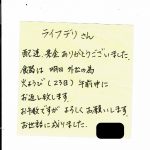 ライフデリさん
配達、集金ありがとうございました。
食器は 明日 外出の為
火ようび(23日)午前中に
お返し致します
お手数ですが よろしくお願いします
お世話に成りました。